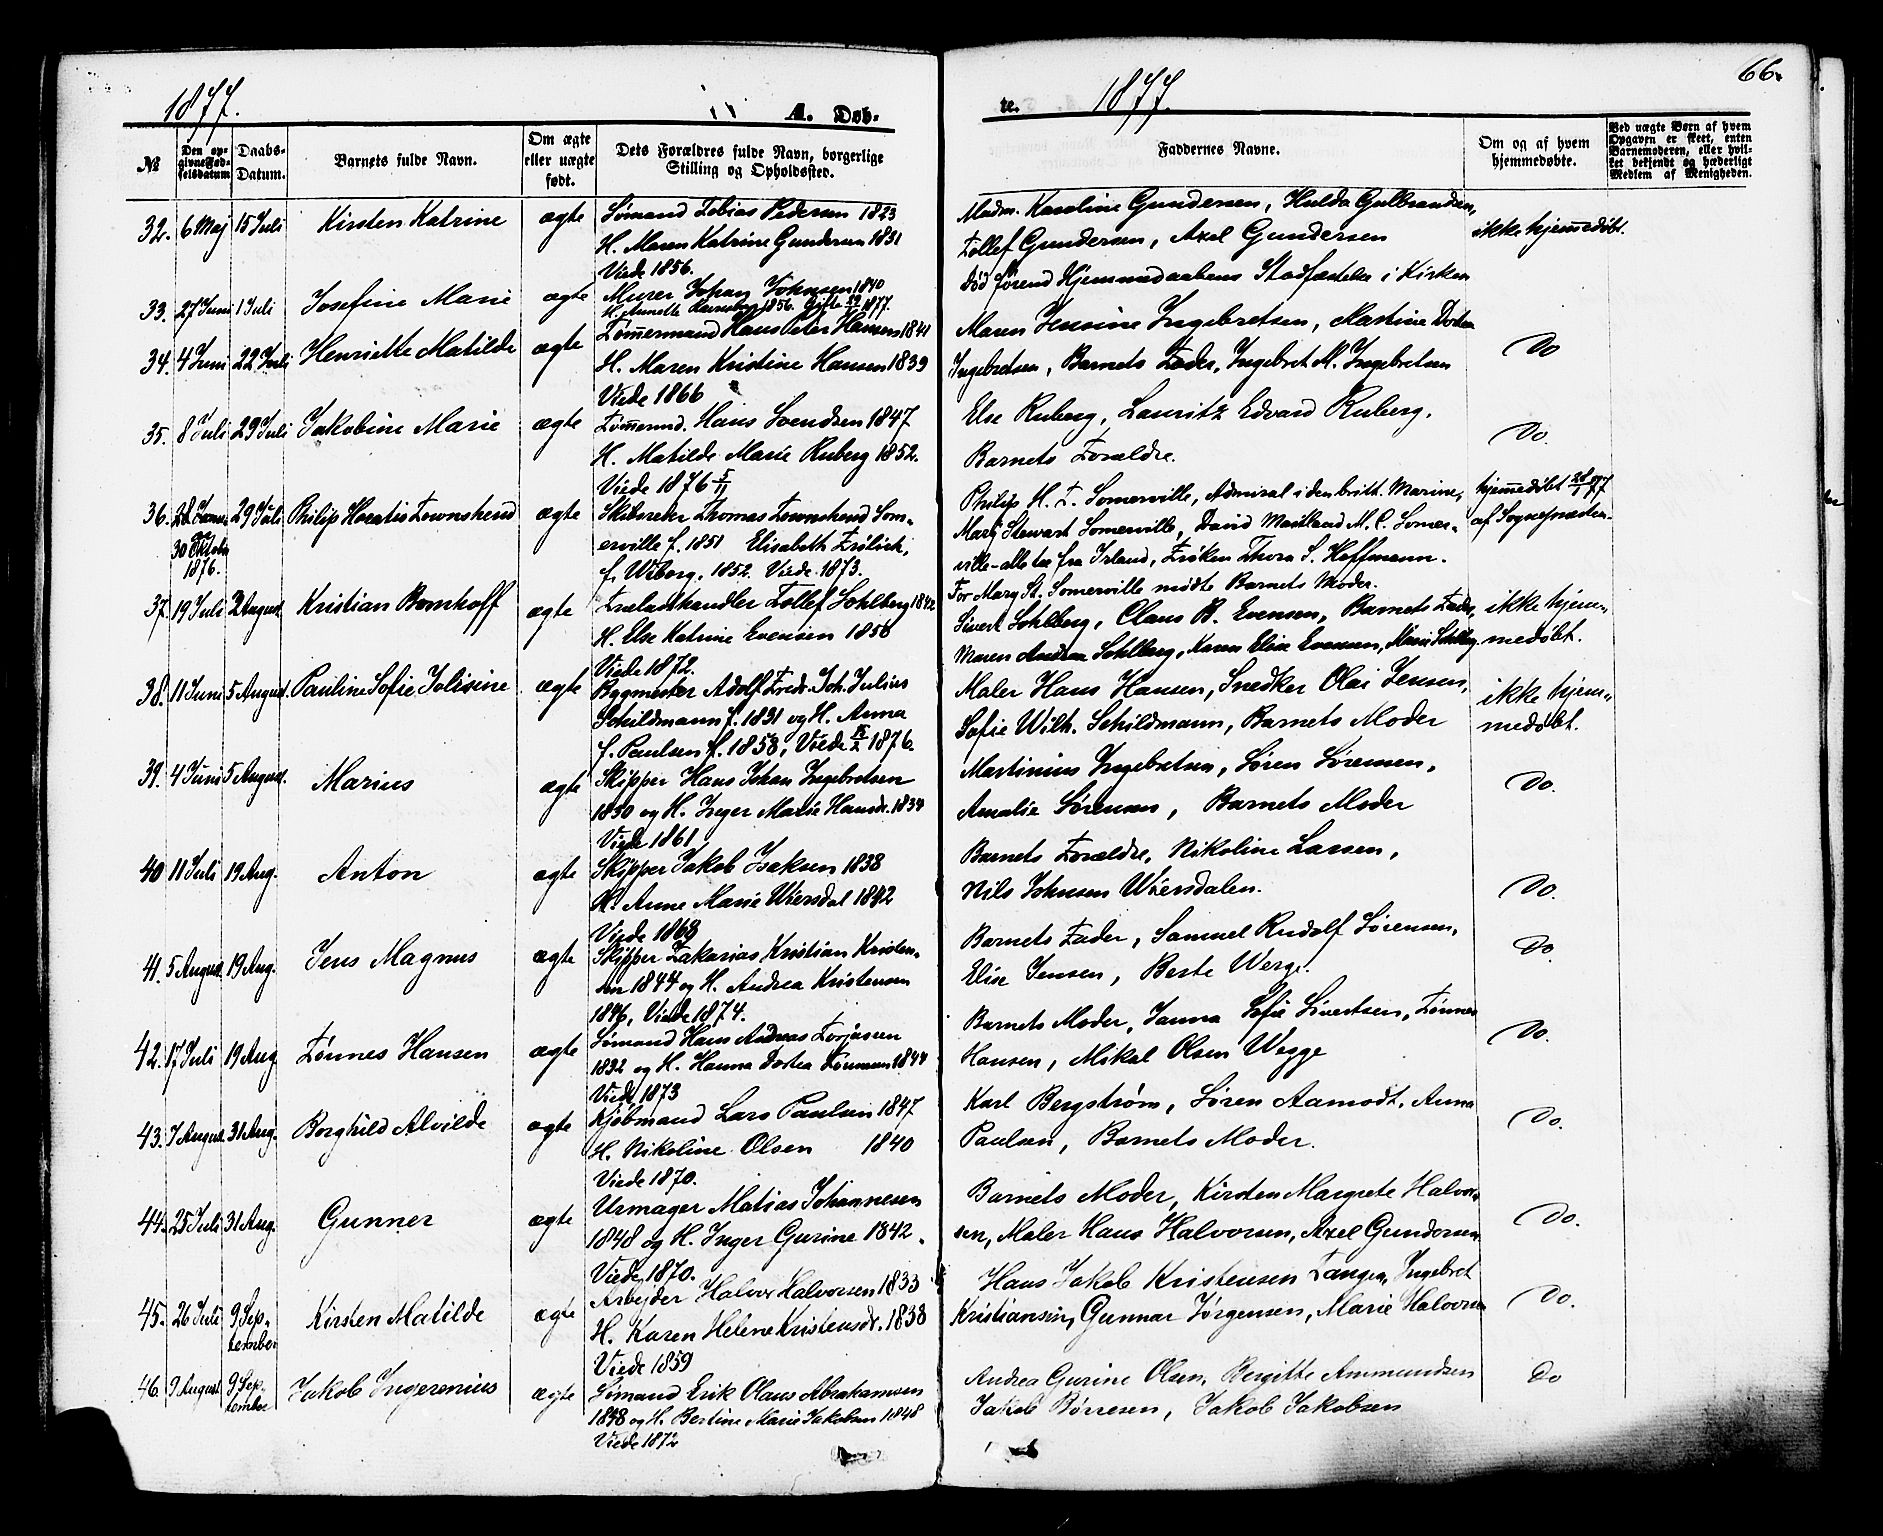 1877. A. Døb-
te. 1877. 66.
№
Den opgivne Fødselsdatum
Daabs-Datum.
Barnets fulde Navn.
Om ægte eller uægte født.
Dets Forældres fulde Navn, borgerlige Stilling og Opholdssted.
Faddernes Navne.
Om og af hvem hjemmedøbte.
Ved uægte Børn af hvem Opgaven er skeet, enten Barnemoderen, eller hvilket bekjendt og hæderligt Medlem af Menigheden.
32. 6 Maj 15 Juli Kirsten Katrine ægte Sømand Tobias Pedersen 1823
H. Maren Katrine Gundersen 1831
Viede 1856.
Madm. Karoline Gundersen, Hulda Gulbrandsen,
Tollef Gundersen, Axel Gundersen
ikke hjemmedøbt.
33. 27 Juni 1 Juli Josefine Marie ægte Murer Johan Johnsen 1840
H. Annette 1856. Gifte 1877.
Død førend Hjemmedaabens Stadfæstelse i Kirken
34. 4 Juni 22 Juli Henriette Matilde ægte Tømmermand Hans Peter Hansen 1841
H. Maren Kristine Hansen 1839
Viede 1866
Maren Jensine Ingebretsen, Martine Dortea
Ingebretsen, Barnets Fader, Ingebret M. Ingebretsen
Do
35. 8 Juli 29 Juli Jakobine Marie ægte Tømermd. Hans Svendsen 1847
H. Matilde Marie Ruberg 1852.
Viede 1876 5/11
Else Ruberg, Lauritz Edvard Ruberg.
Barnets Forældre.
Do.
36. 30 Oktober 1876. 29 Juli Philip Horatio Townshend ægte Skibsreder Thomas Townshend Som-
erville f. 1851 Elisabeth Frølich,
f. Wiborg. 1852. Viede 1873.
Philip H. T. Somerville, Admiral i den britt. Marine,
Mary Stewart Somerville, David Maitland M. C. Somer-
ville - alle tre fra Irland, Frøken Thora S. Hoffmann.
For Mary St. Somerville mødte Barnets Moder.
hjemmedøbt 28/1 77
af Sognepræsten.
37. 19 Juli 2 August Kristian Bomhoff ægte Trælasthandler Tollef Sohlberg 1842
H. Else Katrine Evensen 1850
Viede 1872.
Sivert Sohlberg, Claus B. Evensen, Barnets Fader,
Maren Andrea Sohlberg, Karen Elise Evensen, Marie Sohlberg.
ikke hjem-
medøbt.
38. 11 Juni 5 August. Pauline Sofie Julisine ægte Bygmester Adolf Fredr. Joh. Julius
Schildmann f. 1831 og H. Anna
f. Paulsen f. 1858, Viede 1876.
Maler Hans Hansen, Snedker Olai Jensen,
Sofie Wilh. Schildmann, Barnets Moder
ikke hjem-
medøbt.
39. 4 Juni 5 August. Marius ægte Skipper Hans Johan Ingebretsen
1830 og H. Inger Marie Hansdr. 1834
Viede 1861
Martinius Ingebretsen, Søren Sørensen,
Amalie Sørensen, Barnets Moder
Do.
40 11 Juli 19 Aug. Anton ægte Skipper Jakob Isaksen 1838
H. Anne Marie Wiersdal 1842
Viede 1868
Barnets Forældre, Nikoline Larsen,
Nils Johnsen Wiersdalen.
Do.
41. 5 August. 19 Aug. Jens Magnus ægte Skipper Zakarias Kristian Kristen-
sen 1844 og H. Andrea Kristensen
1846, Viede 1874.
Barnets Fader, Samuel Rudolf Sørensen,
Elise Jensen, Berte Werge.
Do.
42. 17 Juli 19 Aug Tønnes Hansen ægte Sømand Hans Andreas Torjussen
1832 og H. Hanna Dortea Tønnesen 1844
Viede 1873
Barnets Moder, Janna Sofie Sivertsen, Tønnes
Hansen, Mikal Olsen Wegge
Do.
43. 7 August 31 Aug. Borghild Alvilde ægte Kjøbmand Lars Paulsen 1847
H. Nikoline Olsen 1840
Viede 1870.
Karl Bergstrøm, Søren Aamodt, Anna
Paulsen, Barnets Moder.
Do.
44. 25 Juli 31 Aug. Gunner ægte Urmager Matias Johannesen
1848 og H. Inger Gurine 1842.
Viede 1870.
Barnets Moder, Kirsten Margrete Halvor-
sen, Maler Hans Halvorsen, Axel Gundersen
Do.
45. 26 Juli 9 Sep-
tember Kirsten Matilde ægte Arbejder Halvor Halvorsen 1833
H. Karen Helene Kristensdr. 1838
Viede 1859
Hans Jakob Kristensen Tangen, Ingebret
Kristiansen, Gunnar Jørgensen, Marie Halvorsen
Do.
46. 9 August 9 Sep-
tember Jakob Ingerenius ægte Sømand Erik Olaus Abrahamsen
1848 og H. Bertine Marie Jakobsen 1848
Viede 1872
Andrea Gurine Olsen, Bergitte Ammundsen
Jakob Børresen, Jakob Jakobsen
Do